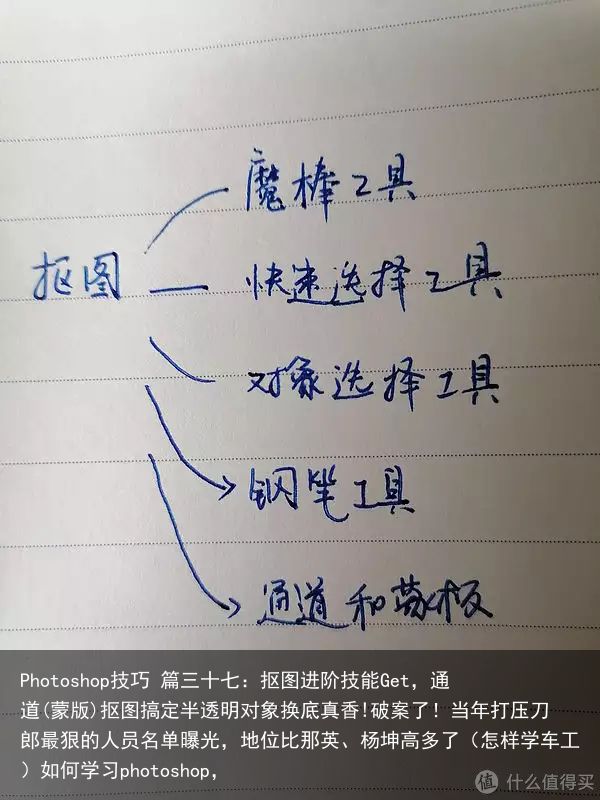 魔棒工具
抠图
快速选择工具
对象选择工具
钢笔工具
通道和蒙板
Photoshop技巧 篇三十七：抠图进阶技能Get，通
道(蒙版)抠图搞定半透明对象换底真香!破案了！当年打压刀
郎最狠的人员名单曝光，地位比那英、杨坤高多了（怎样学车工
）如何学习photoshop，
值 什么值得买